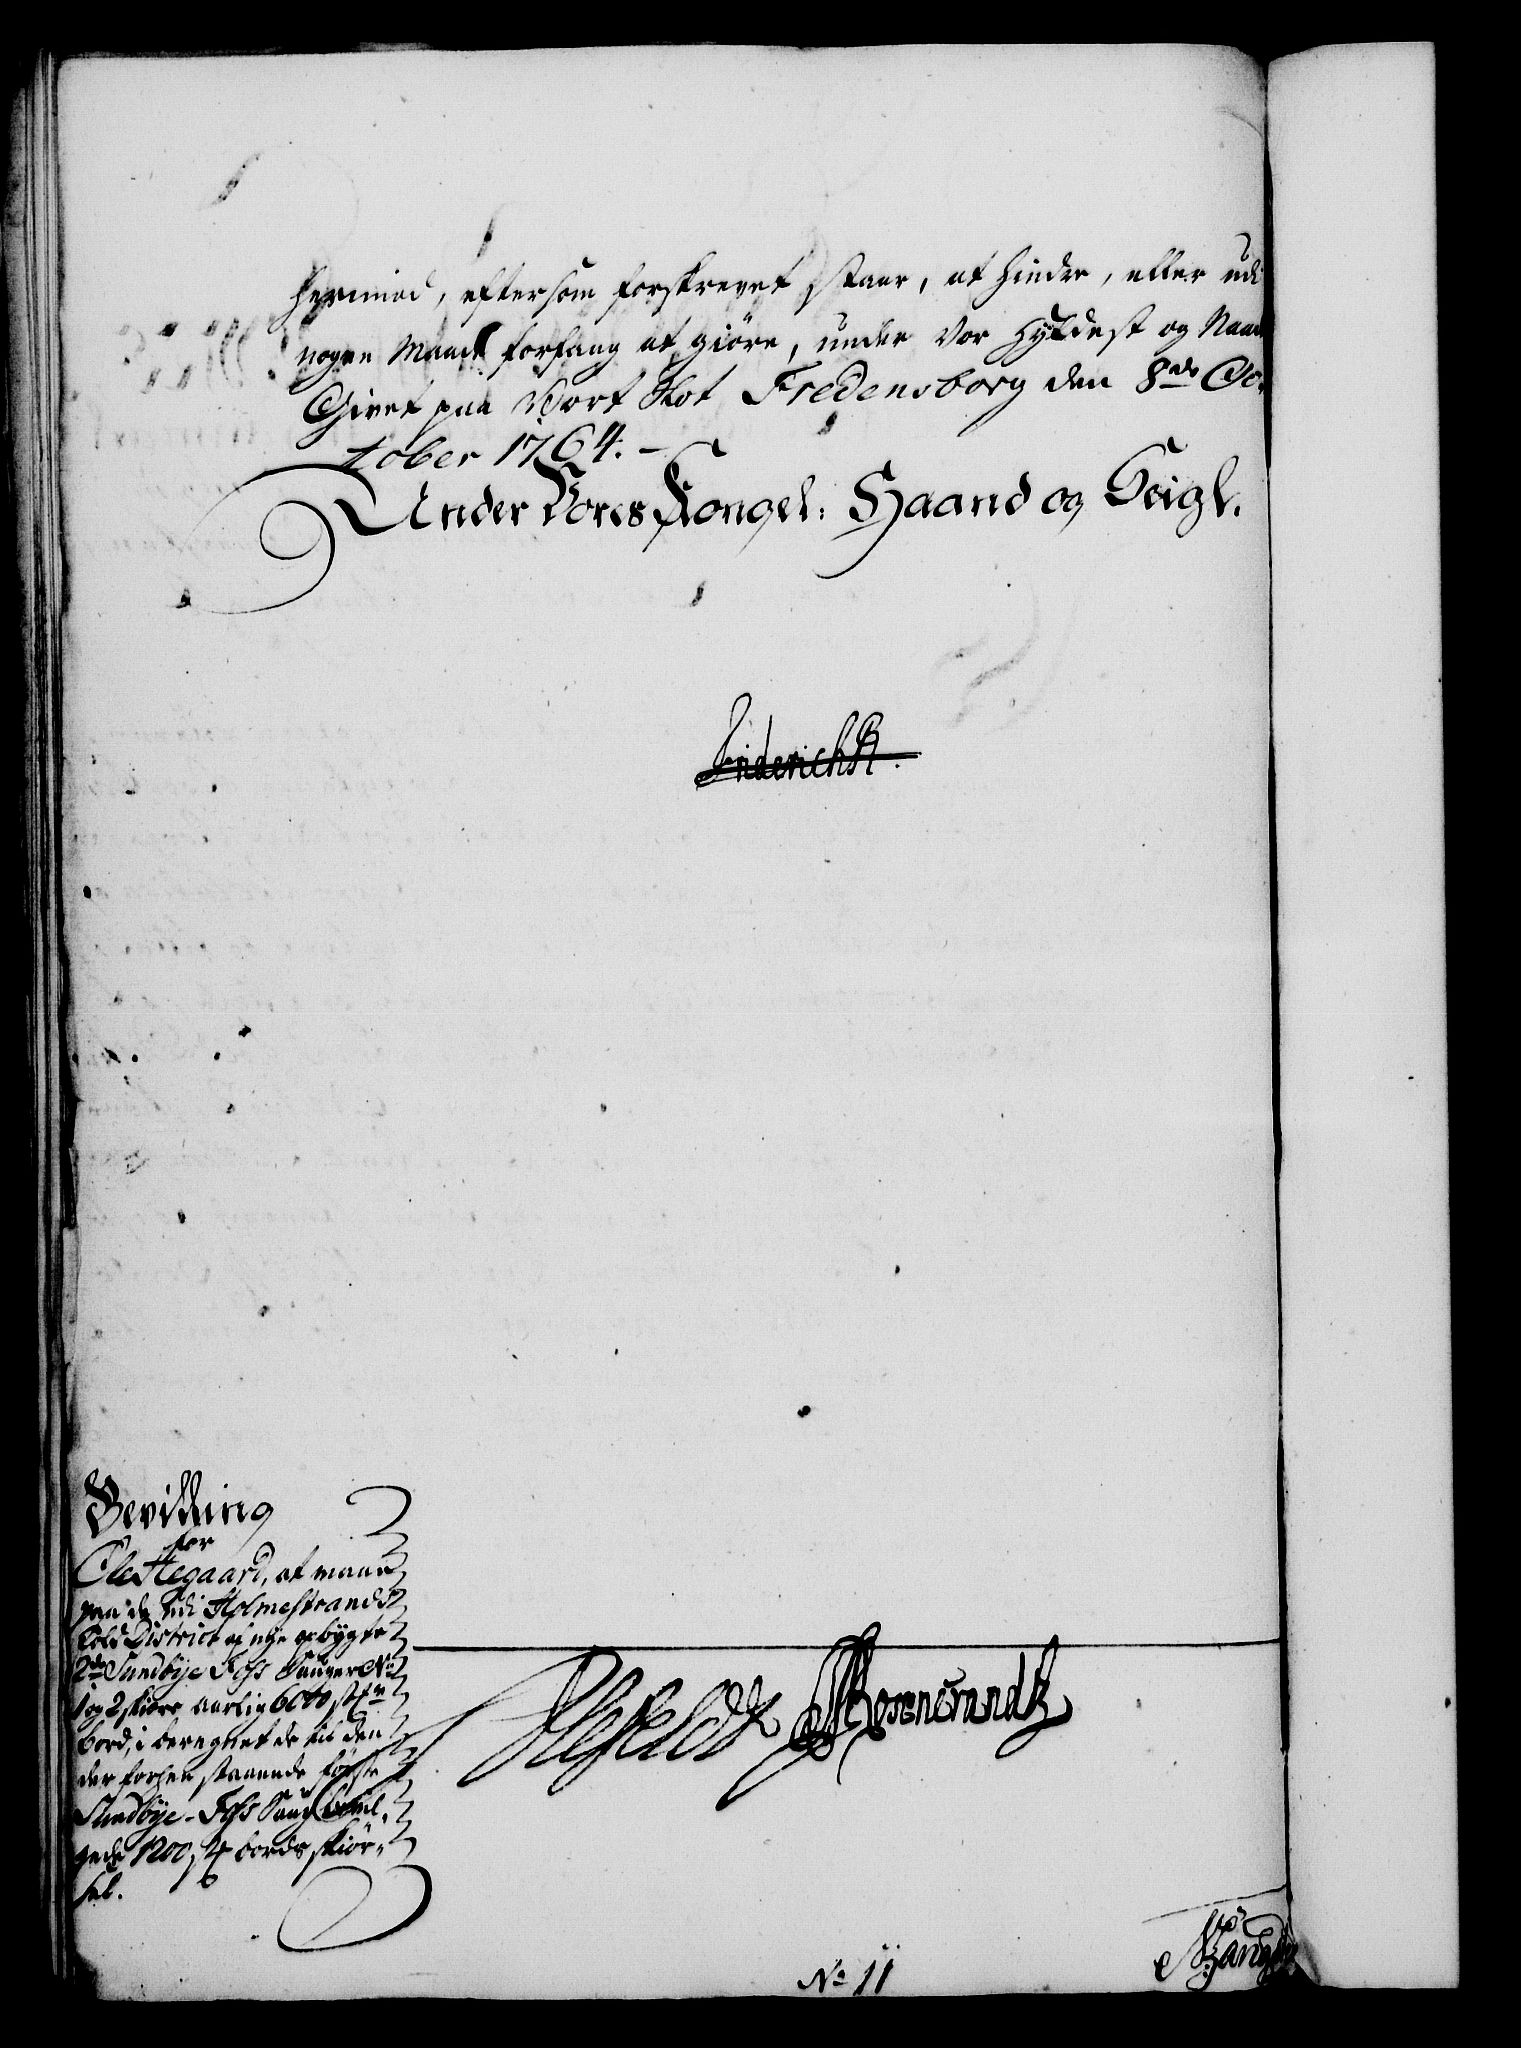 hermed, eftersom forskrevet staar, at hindre, eller udi
nogen Maade forfang at giöre, under Vor Hyldest og Naade
Givet paa Vort Slot Fredensborg den 8de Oc-
tober 1764. -
Under Vores Kongel: Haand og Seigl.
Friderich R.
Bevilling
for
Ole Hegaard, at maae
paa de udi Holmestrands
Told District af nye opbygte
2de Sundbÿe Foss Sauger No
1 og 2 skiære aarlig 6000 st
bord, i beregnet de til den
der forhen staaende förste
Sundbÿe-Foss Saug bevil-
gede 1200 st bords skiör-
sel.
No 11